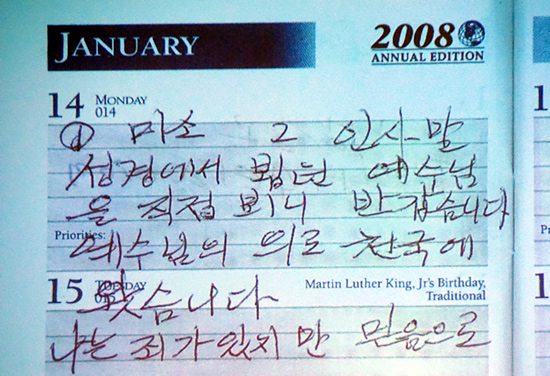 JANUARY
2008
ANNUAL EDITION
14 MONDAY
014
① 미소 2 인사말
성경에서 뵙던 예수님
을 직접 뵈니 반갑습니다
Priorities:
예수님의 의로 천국에
15 TUESDAY
015
왔습니다
Martin Luther King, Jr's Birthday,
Traditional
나는 죄가 있지만 믿음으로